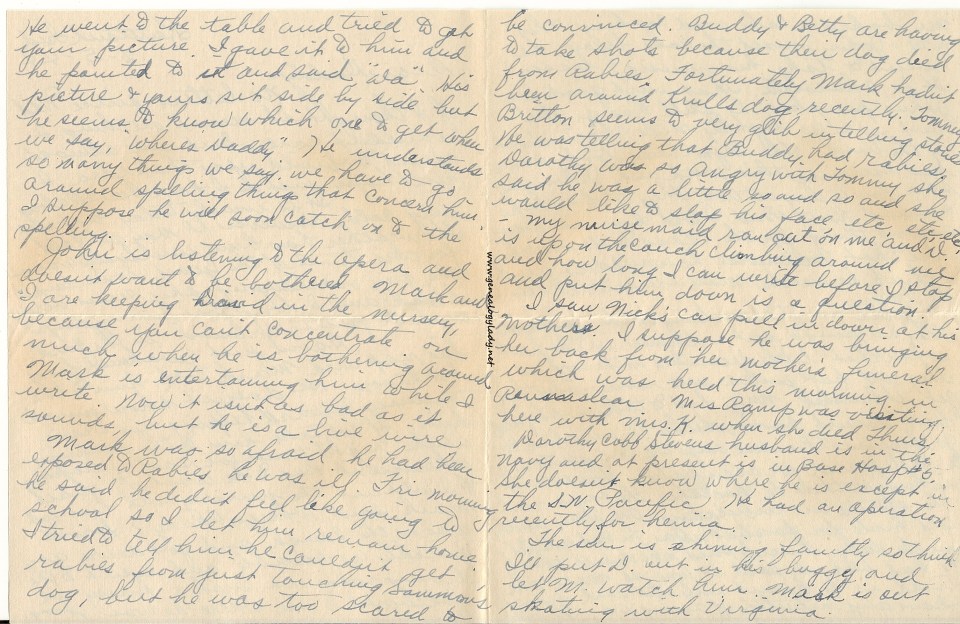 He went to the table and tried to get
your picture. I gave it to him and
he pointed to it and said "da". His
picture & yours sit side by side but
he seems to know which one to get when
we say, "Where's Daddy" He understands
so many things we say. We have to go
around spelling things that concern him
I suppose he will soon catch on to the
spelling.
John is listening to the opera and
doesn't want to be bothered. Mark and
I are keeping David in the nursery,
because you can't concentrate on
much when he is bothering around.
Mark is entertaining him while I
write. Now it isn't as bad as it
sounds, but he is a live wire
Mark was so afraid he had been
exposed to Rabies he was ill. Fri morning
he said he didn't feel like going to
school so I let him remain home
I tried to tell him he couldn't get
rabies from just touching Sammons
dog, but he was too scared to
www.genealogylady.net
be convinced. Buddy & Betty are having
to take shots because their dog died
from Rabies. Fortunately Mark hadn't
been around Krulls dog recently. Tommy
Britton seems to very glib in telling stories
He was telling that Buddy had rabies.
Dorothy was so angry with Tommy she
said he was a little so and so and she
would like to slap his face, etc, etc, etc,
- My nurse maid ran out on me and D.
is up on the couch climbing around me
and how long I can write before I stop
and put him down is a question.
I saw Nick's car pull in down at his
Mothers. I suppose he was bringing
her back from her mother's funeral
which was held this morning in
Mrs Ramp was visiting
here with Mrs. K. when she died Thurs
Dorothy Cobb Stevens husband is in the
Navy and at present is in Base Hosp
She doesn't know where he is except in
the S.W. Pacific. He had an operation
recently for hernia.
The sun is shining faintly so think
I'll put D. out in his buggy and
let M. watch him. Mark is out
skating with Virginia.